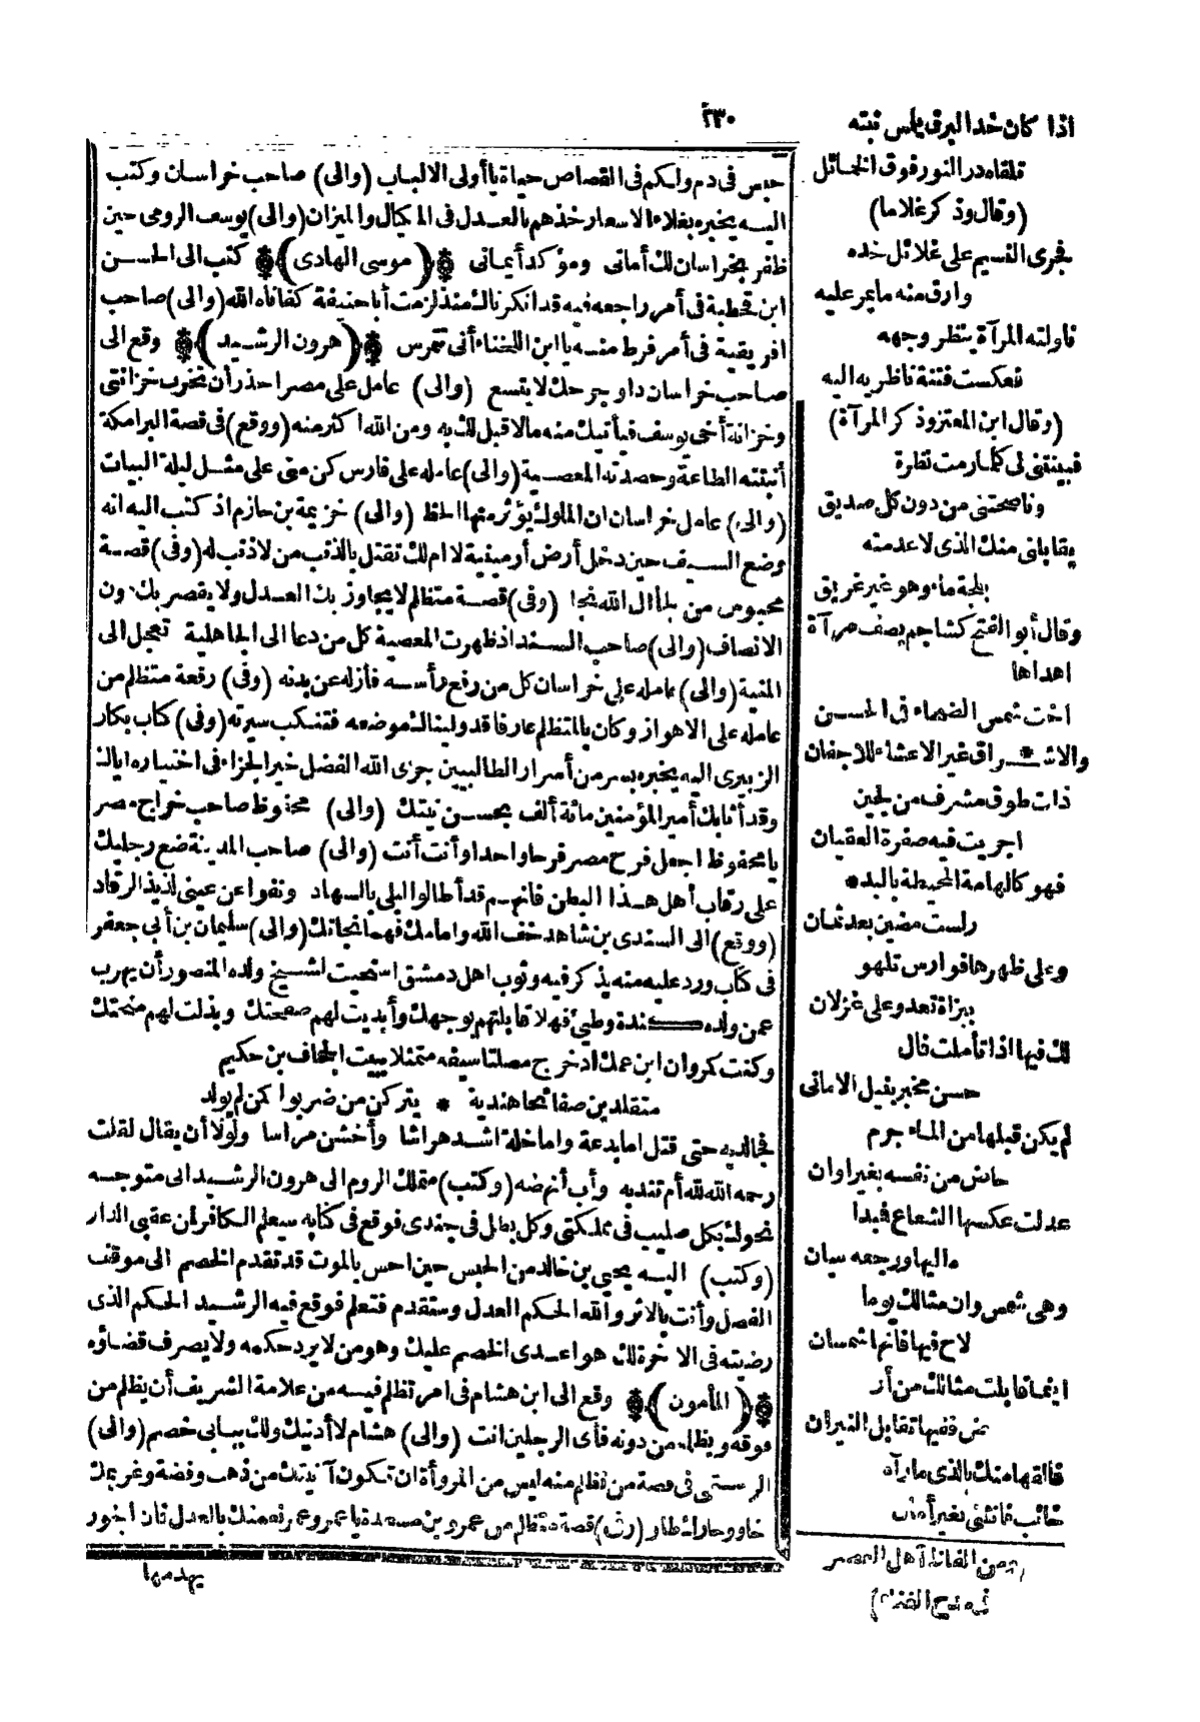 ٢٣٠
حبس فى دم ولكم فى القصاص حياة ياأولى الالباب (والى) صاحب خراسان وكتب
اليه يخبره بغلاء الاسعار خذهم بالعدل فى المكيال والميزان (والى) يوسف الرومى حين
ظفر بخراسان لك أمانى ومؤكد أيمانى ﴿موسى الهادى﴾ كتب الى الحسن
ابن قحطبة فى أمر راجعه فيه قد انكرناك منذ لزمت أبا حنيفة كفاناه الله (والى) صاحب
افريقية فى أمر فرط منه يا ابن اللخناء أنى تتمرس ﴿هرون الرشيد﴾ وقع الى
صاحب خراسان داو جرحك لا يتسع (والى) عامل على مصر احذر أن تخرب خزانتى
وخزانة أخى يوسف فيأتيك منه مالا قبل لك به ومن الله اكثر منه (ووقع) فى قصة البرامكة
أنبتته الطاعة وحصدته المعصية (والى) عامله على فارس كن منى على مثل ليلة البيات
(والى) عامل خراسان ان الملوك يؤثر منها الحفظ (والى) خزيمة بن حازم اذ كتب اليه انه
وضع السيف حين دخل أرض أرمينية لا ام لك تقتل بالذنب من لا ذنب له (وفى) قصة
محبوس من لجأ الى الله نجا (وفى) قصة متظلم لا يجاوز بك العدل ولا يقصر بك دون
الانصاف (والى) صاحب السند اذ ظهرت المعصية كل من دعا الى الجاهلية تعجل الى
المنية (والى) عامله على خراسان كل من رفع رأسه فأزله عن بدنه (وفى) رقعة متظلم من
عامله على الاهواز وكان بالمتظلم عارفا قد وليناك موضعه فتنكب سيرته (وفى) كتاب بكار
الزبيرى اليه يخبره بسر من أسرار الطالبيين جزى الله الفضل خير الجزاء فى اختياره اياك
وقد أثابك أمير المؤمنين مائة ألف بحسن نيتك (والى) محفوظ صاحب خراج مصر
يا محفوظ اجعل فرح مصر فرحا واحدا وأنت أنت (والى) صاحب المدينة ضع رجليك
على رقاب أهل هذا البطن فانهم قد أطالوا ليلى بالسهاد ونفوا عن عينى لذيذ الرقاد
(ووقع) الى السندى بن شاهد خف الله وامامك فهما نجاتك (والى) سليمان بن أبى جعفر
فى كتاب ورد عليه منه يذكر فيه وثوب اهل دمشق استحيت لشيخ ولده المنصور أن يهرب
عمن ولده كندة وطيئ فهلا قابلتهم بوجهك وأبديت لهم صفحتك وبذلت لهم منحتك
وكنت كمروان ابن عمك اذ خرج مصلتا سيفه متمثلا ببيت الجحاف بن حكيم
متقلدين صفائحا هندية * يتركن من ضربوا كمن لم يولد
فجالد به حتى قتل اما بدعة واما خلة اشد هراشا وأخشن مراسا ولولا أن يقال لقلت
رحمه الله لله أم تنديه وأب أنهضه (وكتب) متملك الروم الى هرون الرشيد انى متوجه
نحوك بكل صليب فى مملكتى وكل بطل فى جندى فوقع فى كتابه سيعلم الكافر لمن عقبى الدار
(وكتب) اليه يحيى بن خالد من الحبس حين احس بالموت قد تقدم الخصم الى موقف
الفصل وأنت بالاثر والله الحكم العدل وستقدم فتعلم فوقع فيه الرشيد الحكم الذى
رضيته فى الاخرة لك هو اعدى الخصم عليك وهو من لا يرد حكمه ولا يصرف قضاؤه
﴿المأمون﴾ وقع الى ابن هشام فى امر تظلم فيه من علامة الشريف أن يظلم من
فوقه ويظلمه من دونه فأى الرجلين انت (والى) هشام لا أدنيك ولك ببابى خصم (والى)
الرستمى فى قصة من تظلم منه ليس من المروأة ان تكون آنيتك من ذهب وفضة وغريمك
خاو وجارك طاو (وفى) قصة متظلم من عمرو بن مسعدة يا عمرو عمر نعمتك بالعدل فان الجور
يهدمها
اذا كان خد البرق يلمس نبته
تلقاه در النور فوق الخمائل
(وقال وذكر غلاما)
فجرى النسيم على غلائل خده
وارق منه ما يمر عليه
ناولته المرآة ينظر وجهه
فعكست فتنة ناظريه اليه
(وقال ابن المعتز وذكر المرآة)
فبينتنى لى كلما رمت نظرة
وناصحتى من دون كل صديق
يقابلنى منك الذى لا عدمته
بلجة ماء وهو غير غريق
وقال أبو الفتح كشاجم يصف مرآة
اهداها
اخت شمس الضحاء فى الحسن
والاشـ * ـراق غير الاعشاء للاجفان
ذات طوق مشرف من لجين
اجريت فيه صفرة العقيان
فهو كالهامة المحيطة بالبد *
رلست مضين بعد ثمان
وعلى ظهرها فوارس تلهو
ببزاة تعدو على غزلان
لك فيها اذا تأملت فال
حسن مخبر بنيل الامانى
لم يكن قبلها من الماء جرم
حاش من نفسه بغير اوان
عدلت عكسها الشعاع فبدا
ه اليها ورجعه سيان
وهى شمس وان مثالك يوما
لاح فيها فانها شمسان
اينما قابلت مثالك من أر
ض ففيها تقابل النيران
فالقها منك بالذى ما رآه
خائب فانثنى بغير أمان
(ومن الفاظ أهل العصر
فى مديح الغناء)